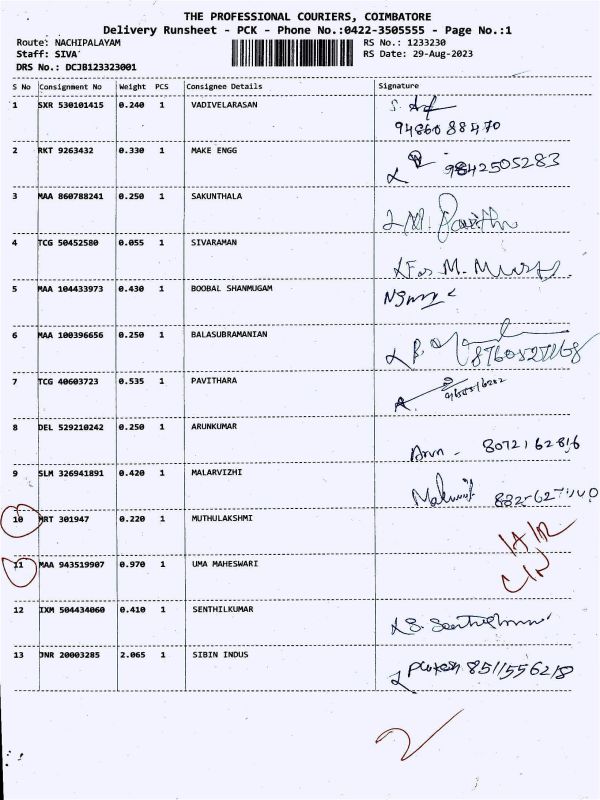 THE PROFESSIONAL COURIERS, COIMBATORE
Delivery Runsheet - PCK - Phone No.:0422-3505555 - Page No.:1
Route: NACHIPALAYAM RS No.: 1233230
Staff: SIVA RS Date: 29-Aug-2023
DRS No.: DCJB123323001
S No Consignment No Weight PCS Consignee Details Signature
1 SXR 530101415 0.240 1 VADIVELARASAN
94860 88470
2 RKT 9263432 0.330 1 MAKE ENGG 9842505283
3 MAA 860788241 0.250 1 SAKUNTHALA
4 TCG 50452580 0.055 1 SIVARAMAN
5 MAA 104433973 0.430 1 BOOBAL SHANMUGAM
6 MAA 100396656 0.250 1 BALASUBRAMANIAN
7 TCG 40603723 0.535 1 PAVITHARA
8 DEL 529210242 0.250 1 ARUNKUMAR
Arun - 8072162816
9 SLM 326941891 0.420 1 MALARVIZHI
10 MRT 301947 0.220 1 MUTHULAKSHMI
11 MAA 943519907 0.970 1 UMA MAHESWARI
12 IXM 504434060 0.410 1 SENTHILKUMAR
13 JNR 20003285 2.065 1 SIBIN INDUS
8511556218
2